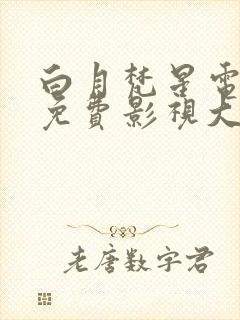 白月梵星電
免費影視大
老唐数字君